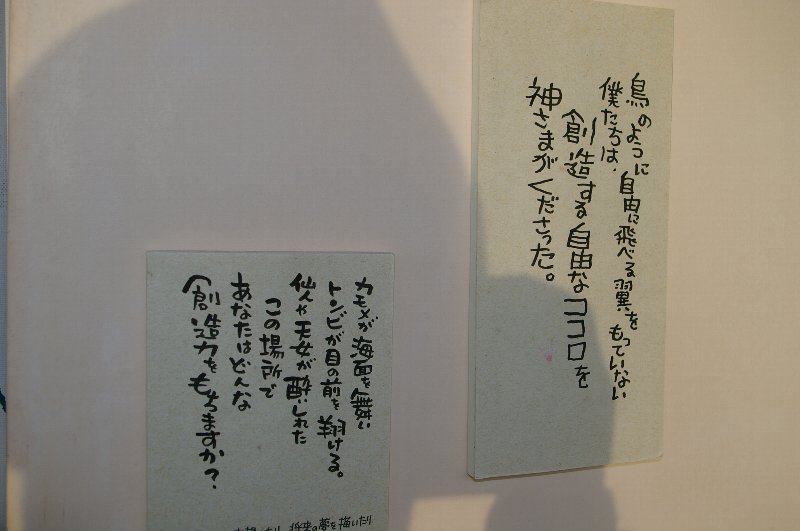 鳥のように自由に飛べる翼をもっていない
僕たちは、
創造する自由なココロを
神さまがくださった。
カモメが海面を舞い
トンビが目の前を翔ける。
仙人や天女が酔いしれた
この場所で
あなたはどんな
創造力をもちますか？
将来の夢を描いたり